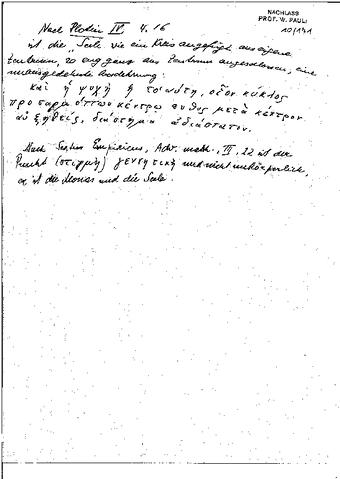 NACHLASS
PROF. W. PAULI
10/141
Nach Plotin IV, 4.16
ist die Seele wie ein Kreis angefügt ans eigene
Zentrum, so eng ganz ans Zentrum angeschlossen, eine
unausgedehnte Ausdehnung:
καὶ ἡ ψυχὴ ἡ τοιαύτη, οἷον κύκλος
προσαρμόττων κέντρῳ εὐθὺς μετὰ κέντρον
αὐξηθείς, διάστημα ἀδιάστατον.
Nach Sextus Empiricus, Adv. math., III, 22 ist der
Punkt (στιγμή) γεννητική und nicht unkörperlich,
ist die Monas und die Seele.